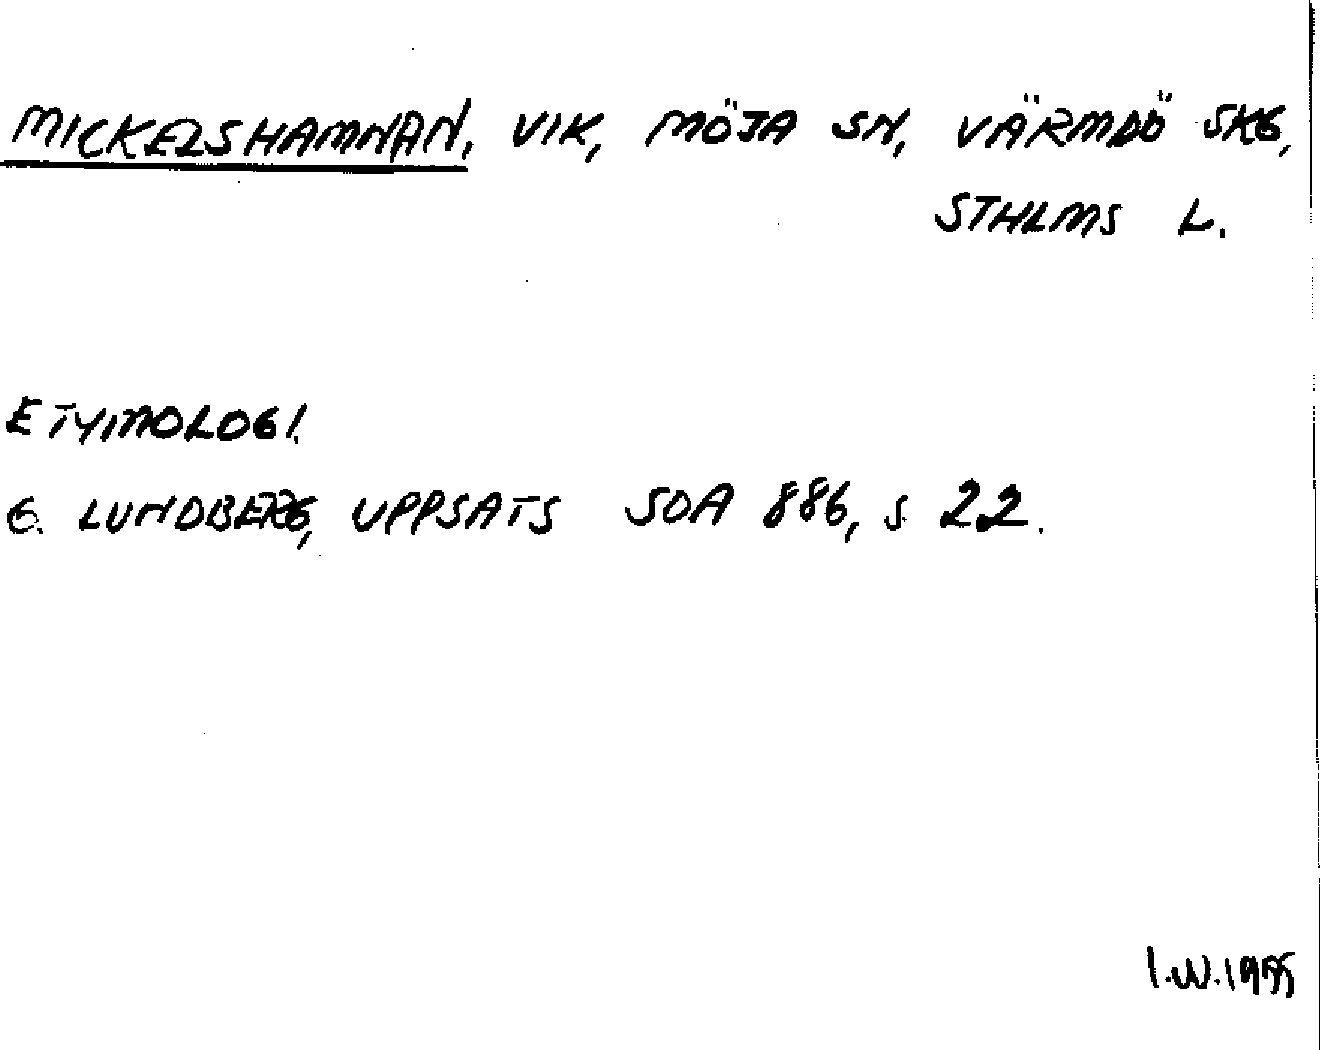 MICKELSHAMNAN, VIK, MÖJA SN, VÄRMDÖ SKG,
STHLMS L.
ETYMOLOGI.
G. LUNDBERG, UPPSATS SOA 886, S 22.
I.W.1955